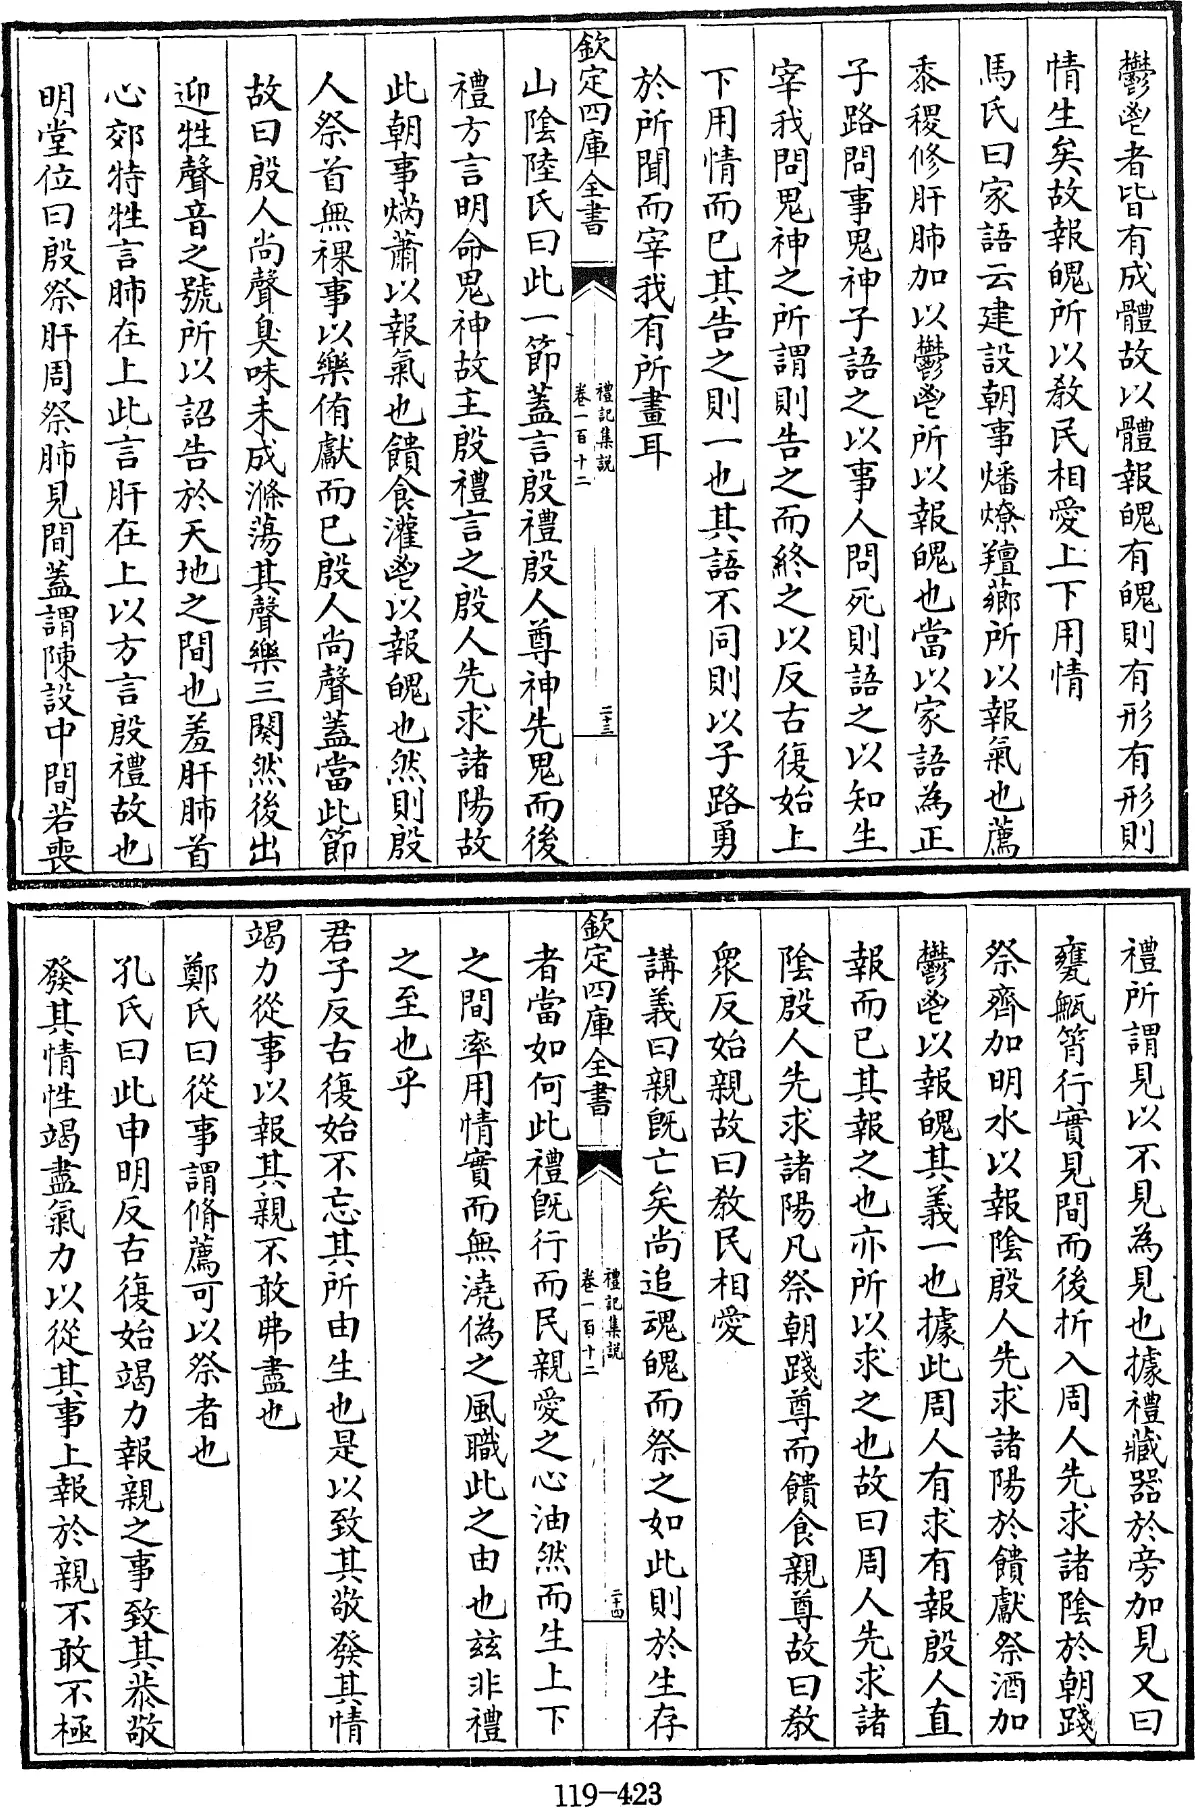 鬱鬯者皆有成體故以體報魄有魄則有形有形則
情生矣故報魄所以教民相愛上下用情
馬氏曰家語云建設朝事燔燎羶薌所以報氣也薦
黍稷修肝肺加以鬱鬯所以報魄也當以家語為正
子路問事鬼神子語之以事人問死則語之以知生
宰我問鬼神之所謂則告之而終之以反古復始上
下用情而已其告之則一也其語不同則以子路勇
於所聞而宰我有所畫耳
欽定四庫全書
禮記集說
卷一百十二
二十三
山陰陸氏曰此一節蓋言殷禮殷人尊神先鬼而後
禮方言明命鬼神故主殷禮言之殷人先求諸陽故
此朝事焫蕭以報氣也饋食灌鬯以報魄也然則殷
人祭首無祼事以樂侑獻而已殷人尚聲蓋當此節
故曰殷人尚聲臭味未成滌蕩其聲樂三闋然後出
迎牲聲音之號所以詔告於天地之間也羞肝肺首
心郊特牲言肺在上此言肝在上以方言殷禮故也
明堂位曰殷祭肝周祭肺見間蓋謂陳設中間若喪
禮所謂見以不見為見也據禮藏器於旁加見又曰
甕甒筲衡實見間而後折入周人先求諸陰於朝踐
祭齊加明水以報陰殷人先求諸陽於饋獻祭酒加
鬱鬯以報魄其義一也據此周人有求有報殷人直
報而已其報之也亦所以求之也故曰周人先求諸
陰殷人先求諸陽凡祭朝踐尊而饋食親尊故曰教
衆反始親故曰教民相愛
講義曰親既亡矣尚追魂魄而祭之如此則於生存
欽定四庫全書
禮記集說
卷一百十二
二十四
者當如何此禮既行而民親愛之心油然而生上下
之間率用情實而無澆偽之風職此之由也茲非禮
之至也乎
君子反古復始不忘其所由生也是以致其敬發其情
竭力從事以報其親不敢弗盡也
鄭氏曰從事謂脩薦可以祭者也
孔氏曰此申明反古復始竭力報親之事致其恭敬
發其情性竭盡氣力以從其事上報於親不敢不極
119-423